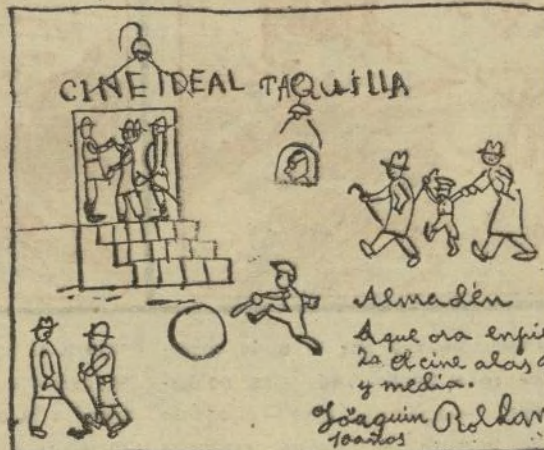 CINE IDEAL TAQUILLA
Almadén
Aque ora enpie
za el cine alas
y media.
Joaquin Roldan
10años